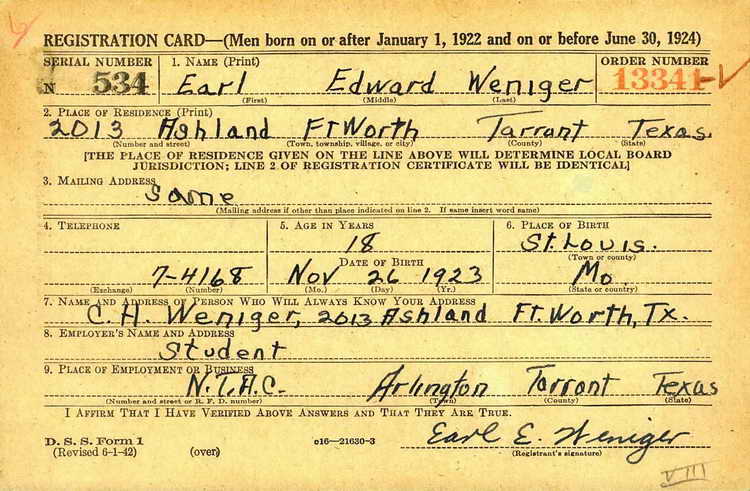 REGISTRATION CARD—(Men born on or after January 1, 1922 and on or before June 30, 1924)
SERIAL NUMBER 1. NAME (Print) ORDER NUMBER
N 534 Earl Edward Weniger 13341-V
(First) (Middle) (Last)
2. PLACE OF RESIDENCE (Print)
2013 Ashland Ft Worth Tarrant Texas
(Number and street) (Town, township, village, or city) (County) (State)
[THE PLACE OF RESIDENCE GIVEN ON THE LINE ABOVE WILL DETERMINE LOCAL BOARD
JURISDICTION; LINE 2 OF REGISTRATION CERTIFICATE WILL BE IDENTICAL]
3. MAILING ADDRESS
Same
(Mailing address if other than place indicated on line 2. If same insert word same)
4. TELEPHONE 5. AGE IN YEARS 6. PLACE OF BIRTH
18 St. Louis.
DATE OF BIRTH (Town or county)
7-4168 Nov 26 1923 Mo.
(Exchange) (Number) (Mo.) (Day) (Yr.) (State or country)
7. NAME AND ADDRESS OF PERSON WHO WILL ALWAYS KNOW YOUR ADDRESS
C. H. Weniger, 2013 Ashland Ft. Worth, Tx.
8. EMPLOYER'S NAME AND ADDRESS
Student
9. PLACE OF EMPLOYMENT OR BUSINESS
N.T.A.C. Arlington Tarrant Texas
(Number and street or R. F. D. number) (Town) (County) (State)
I AFFIRM THAT I HAVE VERIFIED ABOVE ANSWERS AND THAT THEY ARE TRUE.
D. S. S. Form 1
(Revised 6-1-42) (over) c16—21630-3 Earl E. Weniger
(Registrant's signature)
VIII